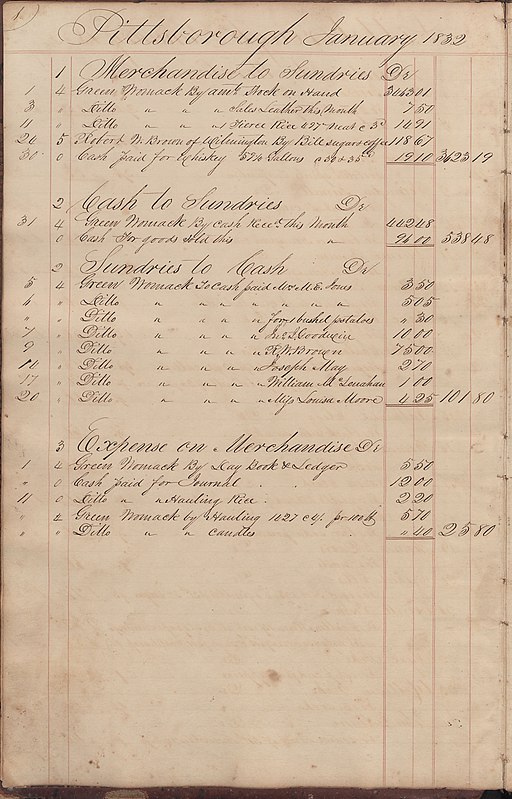 1
Pittsborough January 1832
1 Merchandise to Sundries Dr
1 4 Green Womack By amt Stock on Hand 3463 01
3 " Ditto " " " Sales Leather this Month 7 50
11 " Ditto " " " 1 Tierce Rice 497 neat c 3 14 91
20 5 Robert W. Brown of Wilmington By Bill sugar & coffee 118 67
30 0 Cash paid for Whiskey 57¼ Gallons 19 10 3623 19
2 Cash to Sundries Dr
31 4 Green Womack By Cash Recd. this Month 442 48
0 Cash For goods sold this " 96 00 538 48
2 Sundries to Cash Dr
5 4 Green Womack To Cash paid Mr M. E. Jones 3 50
6 " Ditto " " " " " " 5 05
" " Ditto " " " For 1 bushel potatoes " 30
7 " Ditto " " " " Jno. L. Goodwin 10 00
9 " Ditto " " " " R. W. Brown 75 00
14 " Ditto " " " " Joseph May 2 70
17 " Ditto " " " " William McClenahan 1 00
20 " Ditto " " " " Miss Louisa Moore 4 25 101 80
3 Expense on Merchandise Dr
1 4 Green Womack By Day Book & Ledger 5 50
" 0 Cash paid for Journal . . 12 00
11 0 Ditto " " Hauling Rice . 2 20
" 2 Green Womack by Hauling 1627 pr 100 lb 5 70
" " Ditto " " candles . " 40 25 80